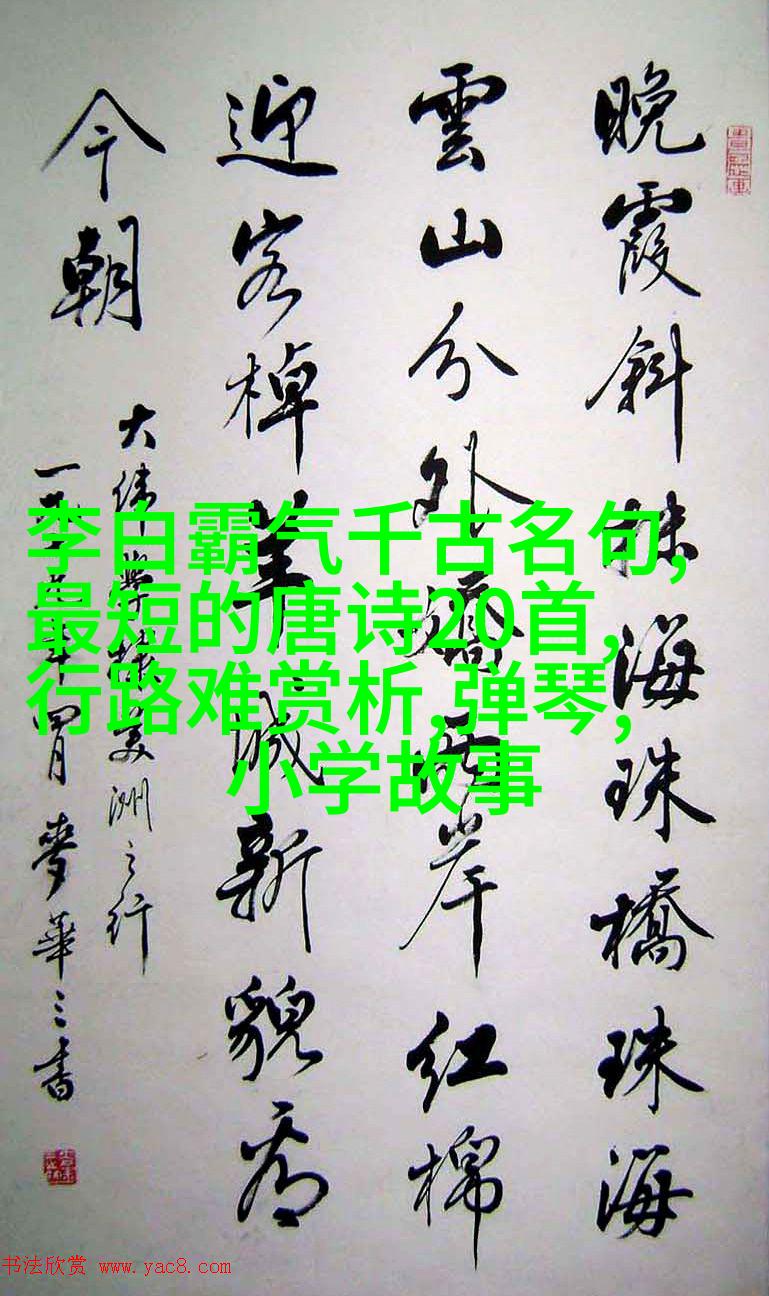 晚霞斜抹海珠橋珠海
雲山分外嬌兩岸红棉
迎客棹羊城新貌看
今朝
大偉美洲之行
一九年四月麥華三書
李白霸气千古名句,
最短的唐诗20首,
行路难赏析,弹琴,
小学故事
书法欣赏 www.yac8.com